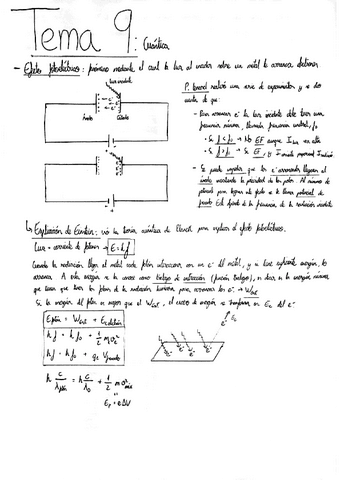 Tema 9: Cuántica
- Efecto fotoeléctrico: fenómeno mediante el cual la luz al incidir sobre un metal le arranca electrones
luz incidente
P. Lenard realizó una serie de experimentos y se dio
cuenta de que:
Ánodo
Cátodo
- Para arrancar e⁻ la luz incidente debe tener una
frecuencia mínima, llamada frecuencia umbral, f₀
• Si f < f₀ → No EF aunque I sea alta
• Si f > f₀ → Si EF, y I
- Se puede impedir que los e⁻ arrancados lleguen al
ánodo invirtiendo la polaridad de la pila. Al mínimo de
potencial para lograr el efecto se le llama potencial de
frenado. Este depende de la frecuencia de la radiación incidente
↳ Explicación de Einstein: usó la teoría cuántica de Planck para explicar el efecto fotoeléctrico.
Luz = corriente de fotones → E = h·f
Cuando la radiación llega al metal cada fotón interacciona con un e⁻ del metal, y si tiene suficiente energía, lo
arranca. A esta energía se la conoce como trabajo de extracción (función trabajo), es decir, es la energía mínima
que tienen que tener los fotones de la radiación luminosa para arrancar los e⁻ → Wext
Si la energía del fotón es mayor que el Wext, el exceso de energía se transforma en Ec del e⁻
Efotón = Wext + Ec electrón
h·f = h·f₀ + 1/2 m v²
h·f = h·f₀ + qe Vfrenado
h c/λfotón = h c/λ₀ + 1/2 m v²máx
Ec = e ΔV
e⁻ Ec